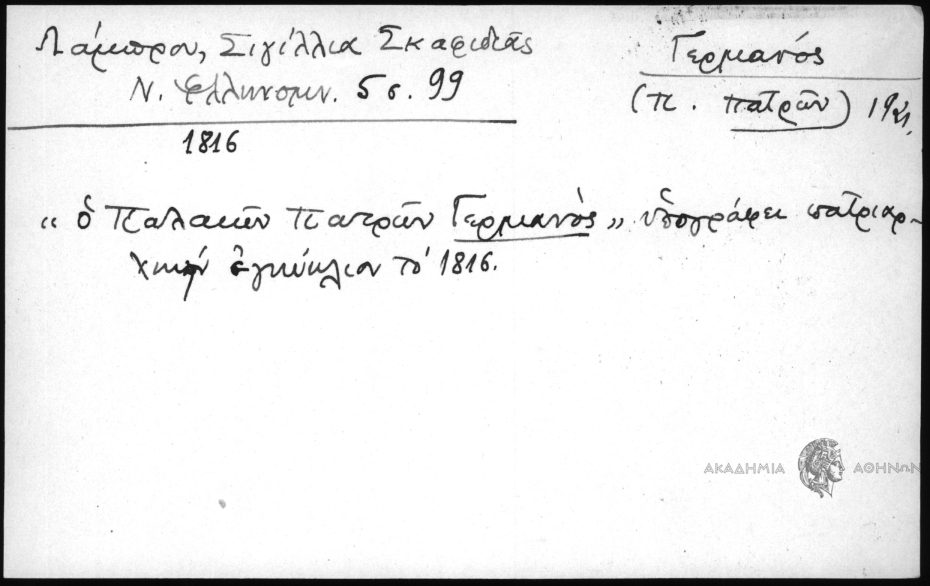 Λάμπρου, Σιγίλλια Σκαφιδιᾶς
Ν. Ἑλληνομν. 5 σ. 99
1816
Γερμανός
(Π. Πατρῶν) 1921,
"ὁ Παλαιῶν Πατρῶν Γερμανὸς" ὑπογράφει πατριαρ-
χικὴν ἐγκύκλιον τὸ 1816.
ΑΚΑΔΗΜΙΑ ΑΘΗΝΩΝ